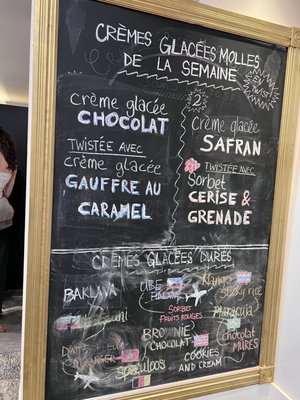 CRÈMES GLACÉES MOLLES
DE LA SEMAINE
EN
TWIST!
crème glacée
CHOCOLAT
TWISTÉE AVEC
crème glacée
GAUFFRE AU
CARAMEL
2
crème glacée
SAFRAN
TWISTÉE AVEC
Sorbet
CERISE &
GRENADE
CRÈMES GLACÉES DURES
BAKLAVA
UBE
SORBET
FRUITS ROUGES
BROWNIE
CHOCOLAT
Speculoos
Mango
sticky rice
Maracuja
Chocolat
MÛRES
COOKIES
AND CREAM